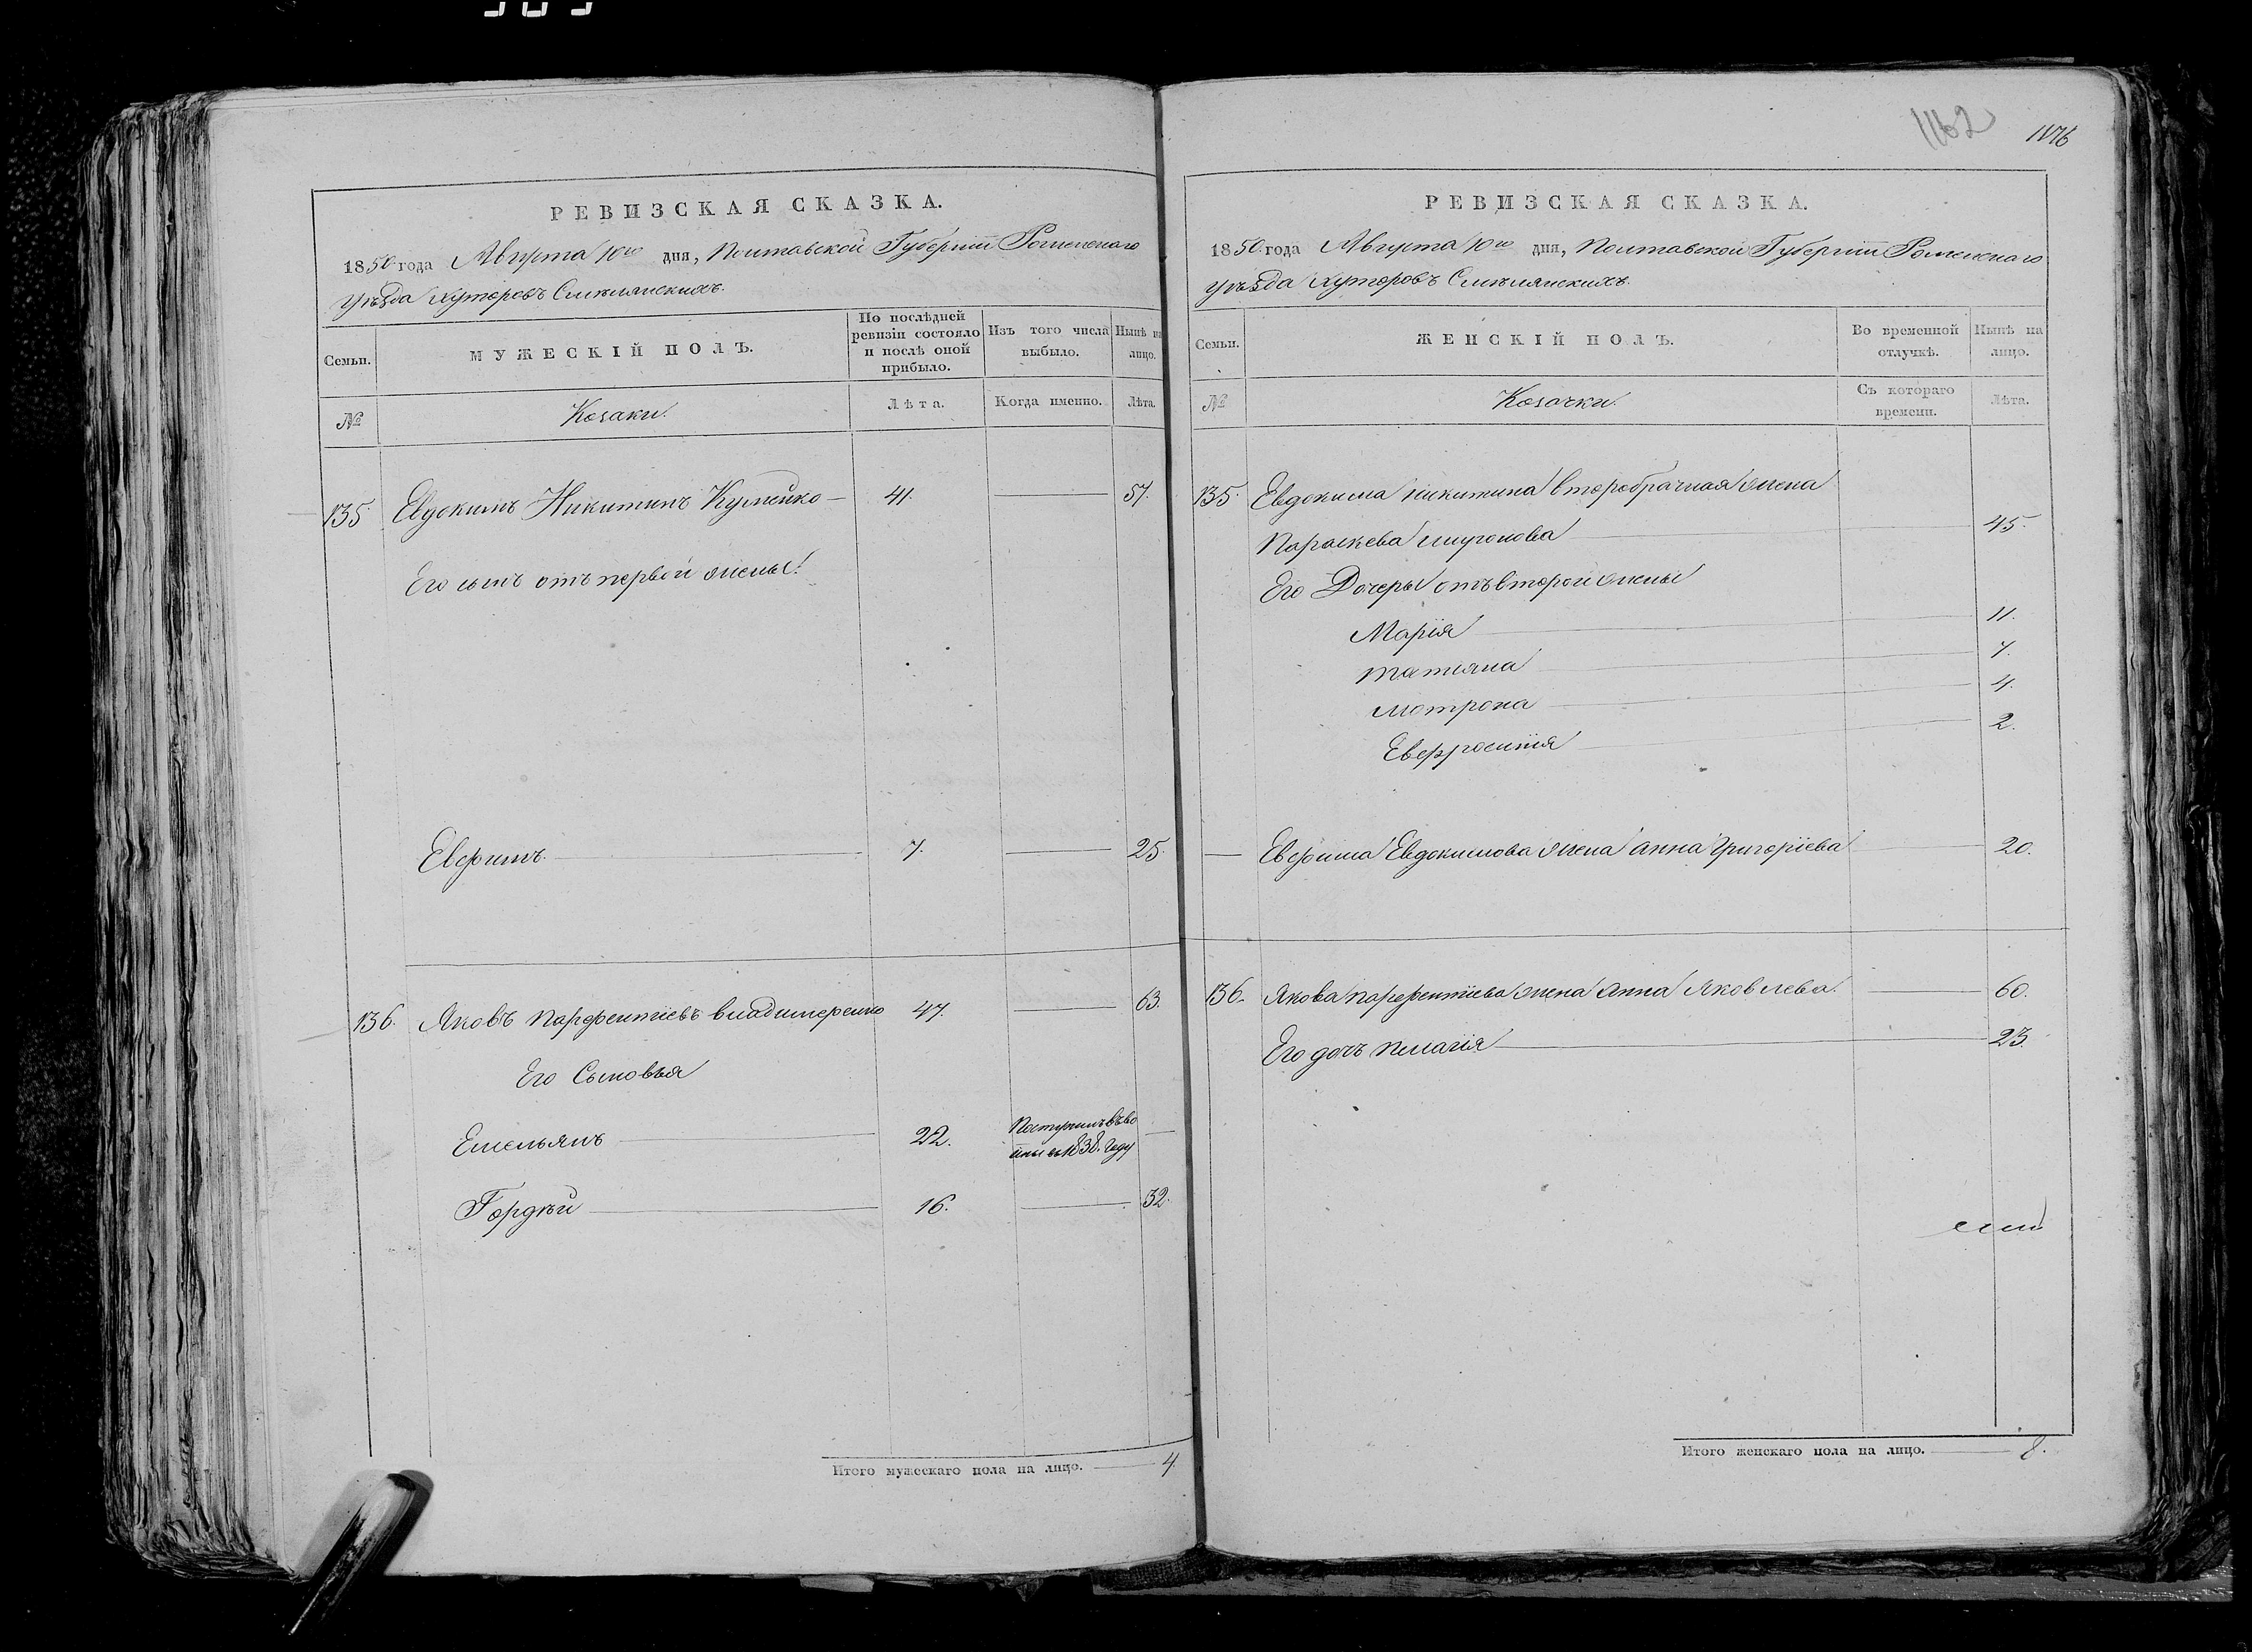 1162 1176
РЕВИЗСКАЯ СКАЗКА.
1850 года Августа 10го дня, Полтавской Губернїи Роменскаго
Уѣзда Хуторовъ Смѣлянскихъ.
Семьи.
МУЖЕСКІЙ ПОЛЪ.
По послѣдней
ревизіи состояло
и послѣ оной
прибыло.
Изъ того числа
выбыло.
Нынѣ на
лицо.
№
Козаки.
Лѣта.
Когда именно.
Лѣта.
135. Евдокимъ Никитинъ 41. 57.
Его сынъ отъ первой жены:
Ефримъ. 7. 25.
136. Яковъ Парфентіевъ Владимеренко 47. 63.
Его Сыновья
Емельянъ 22. Поступилъ въ во
ины въ 1838. Году
Гордѣй 16. 32.
Итого мужескаго пола на лицо. 4.
РЕВИЗСКАЯ СКАЗКА.
1850 года Августа 10го дня, Полтавской Губернїи Роменскаго
Уѣзда Хуторовъ Смѣлянскихъ.
Семьи.
ЖЕНСКІЙ ПОЛЪ.
Во временной
отлучкѣ.
Нынѣ на
лицо.
№
Козачки.
Съ котораго
времени.
Лѣта.
135. Евдокима Никитина второбрачная жена
Параскева Миронова 45.
Его Дочеры отъ второй жены
Марія 11.
Татіяна 7.
Мотрона 4.
Евфросинія 2.
Ефрима Евдокимова жена Анна Григоріева 20.
136. Якова Парфентіева жена Анна Яковлева. 60.
Его дочь Пелагія 23.
Итого женскаго пола на лицо. 8.